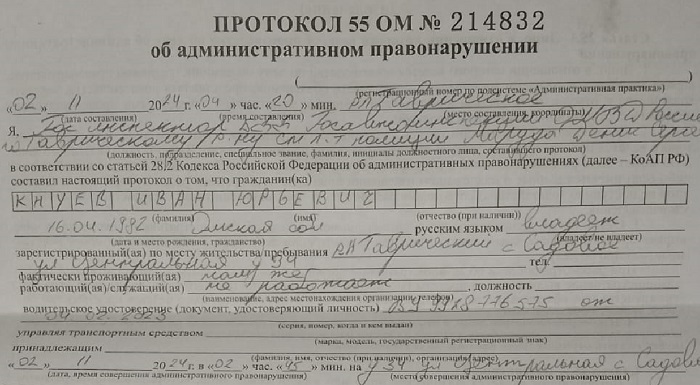 ПРОТОКОЛ 55 ОМ № 214832
об административном правонарушении
(регистрационный номер по подсистеме «Административная практика»)
«02» 11 2024 г. «04» час. «20» мин. рп Таврическое
(дата составления) (время составления) (место составления (координаты)
Я, Гос инспектор ДПС Госавтоинспекции ОМВД России
по Таврическому р-ну ст л-т полиции Денис
(должность, подразделение, специальное звание, фамилия, инициалы должностного лица, составившего протокол)
в соответствии со статьей 28.2 Кодекса Российской Федерации об административных правонарушениях (далее – КоАП РФ)
составил настоящий протокол о том, что гражданин(ка)
КНУЕВ ИВАН ЮРЬЕВИЧ
(фамилия) (имя) (отчество (при наличии))
16.04.1992 Омская обл русским языком владеет
(дата и место рождения, гражданство) (владеет/не владеет)
зарегистрированный(ая) по месту жительства/пребывания Таврический с Садовое
ул Центральная у 34 тел.
фактически проживающий(ая) там же
работающий(ая)/служащий(ая) не работает, должность
(наименование, адрес местонахождения организации, телефон)
водительское удостоверение (документ, удостоверяющий личность) ВУ 9918 776575 от
04.02.2023
(серия, номер, когда и кем выдан)
управляя транспортным средством
(марка, модель, государственный регистрационный знак)
принадлежащим
(фамилия, имя, отчество (при наличии), организация, адрес)
«02» 11 2024 г. в «02» час. «45» мин. на у 34 ул Центральная с Садовое
(дата, время совершения административного правонарушения) (место совершения административного правонарушения)